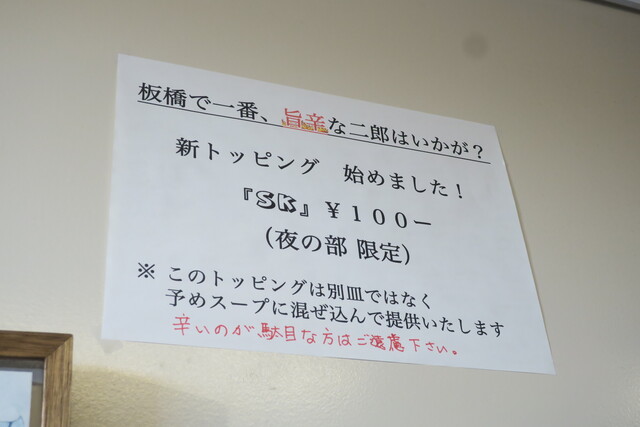 板橋で一番、旨辛な二郎はいかが？
新トッピング　始めました！
『SK』￥１００－
（夜の部 限定）
※ このトッピングは別皿ではなく
予めスープに混ぜ込んで提供いたします
辛いのが駄目な方はご遠慮下さい。